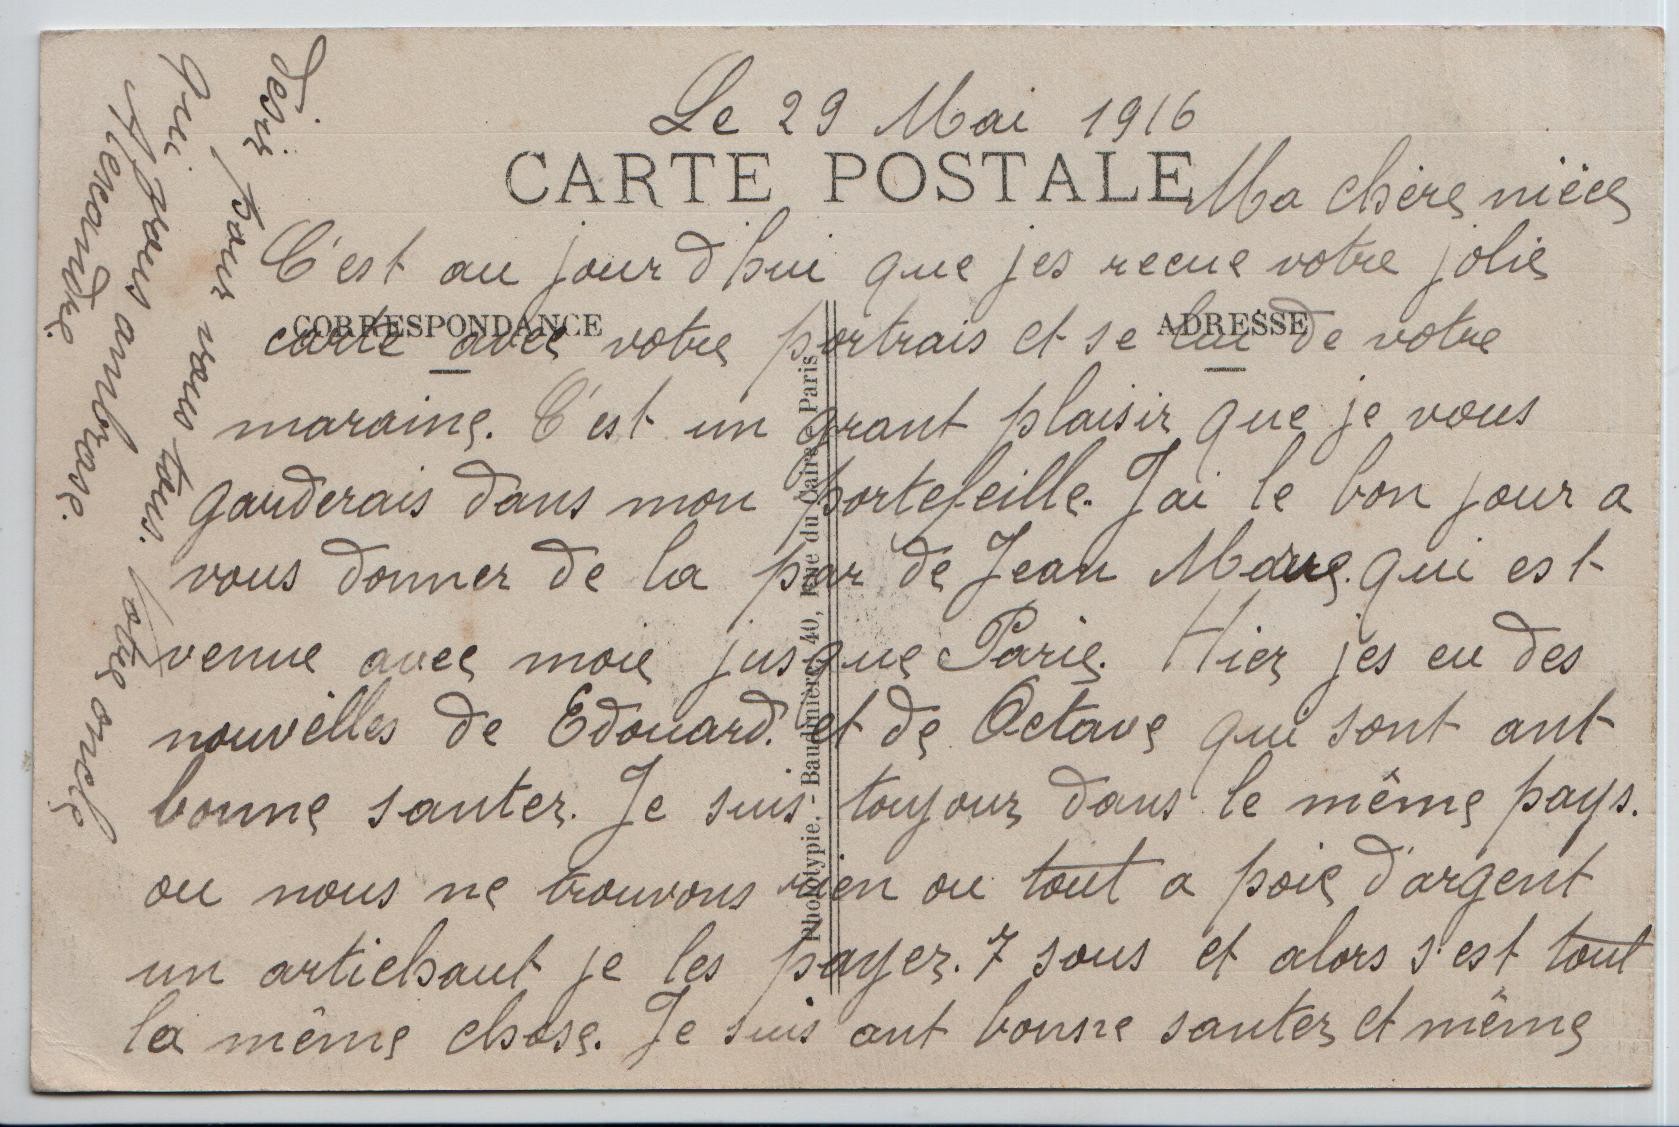 Le 29 Mai 1916
CARTE POSTALE
Ma chère nièce
C'est au jour d'hui que jes recue votre jolie
CORRESPONDANCE
ADRESSE
carte avec votre portrais et se lui de votre
maraine. C'est un grant plaisir que je vous
garderais dans mon portefeille. J'ai le bon jour a
vous donner de la par de Jean Marie. qui est
venue avec moie jusque Parie. Hier jes eu des
nouvelles de Edouard. et de Octave qui sont ant
bonne santer. Je suis toujour dans le même pays.
ou nous ne trouvons rien ou tout a poie d'argent
un artichaut je les payer. 7 sous et alors s'est tout
la même chose. Je suis ant bonne santer et même
desir pour vous tous. Votre oncle
qui vous ambrase.
Alexandre
Phototypie. - Baudinière, 40, Rue du Caire, Paris